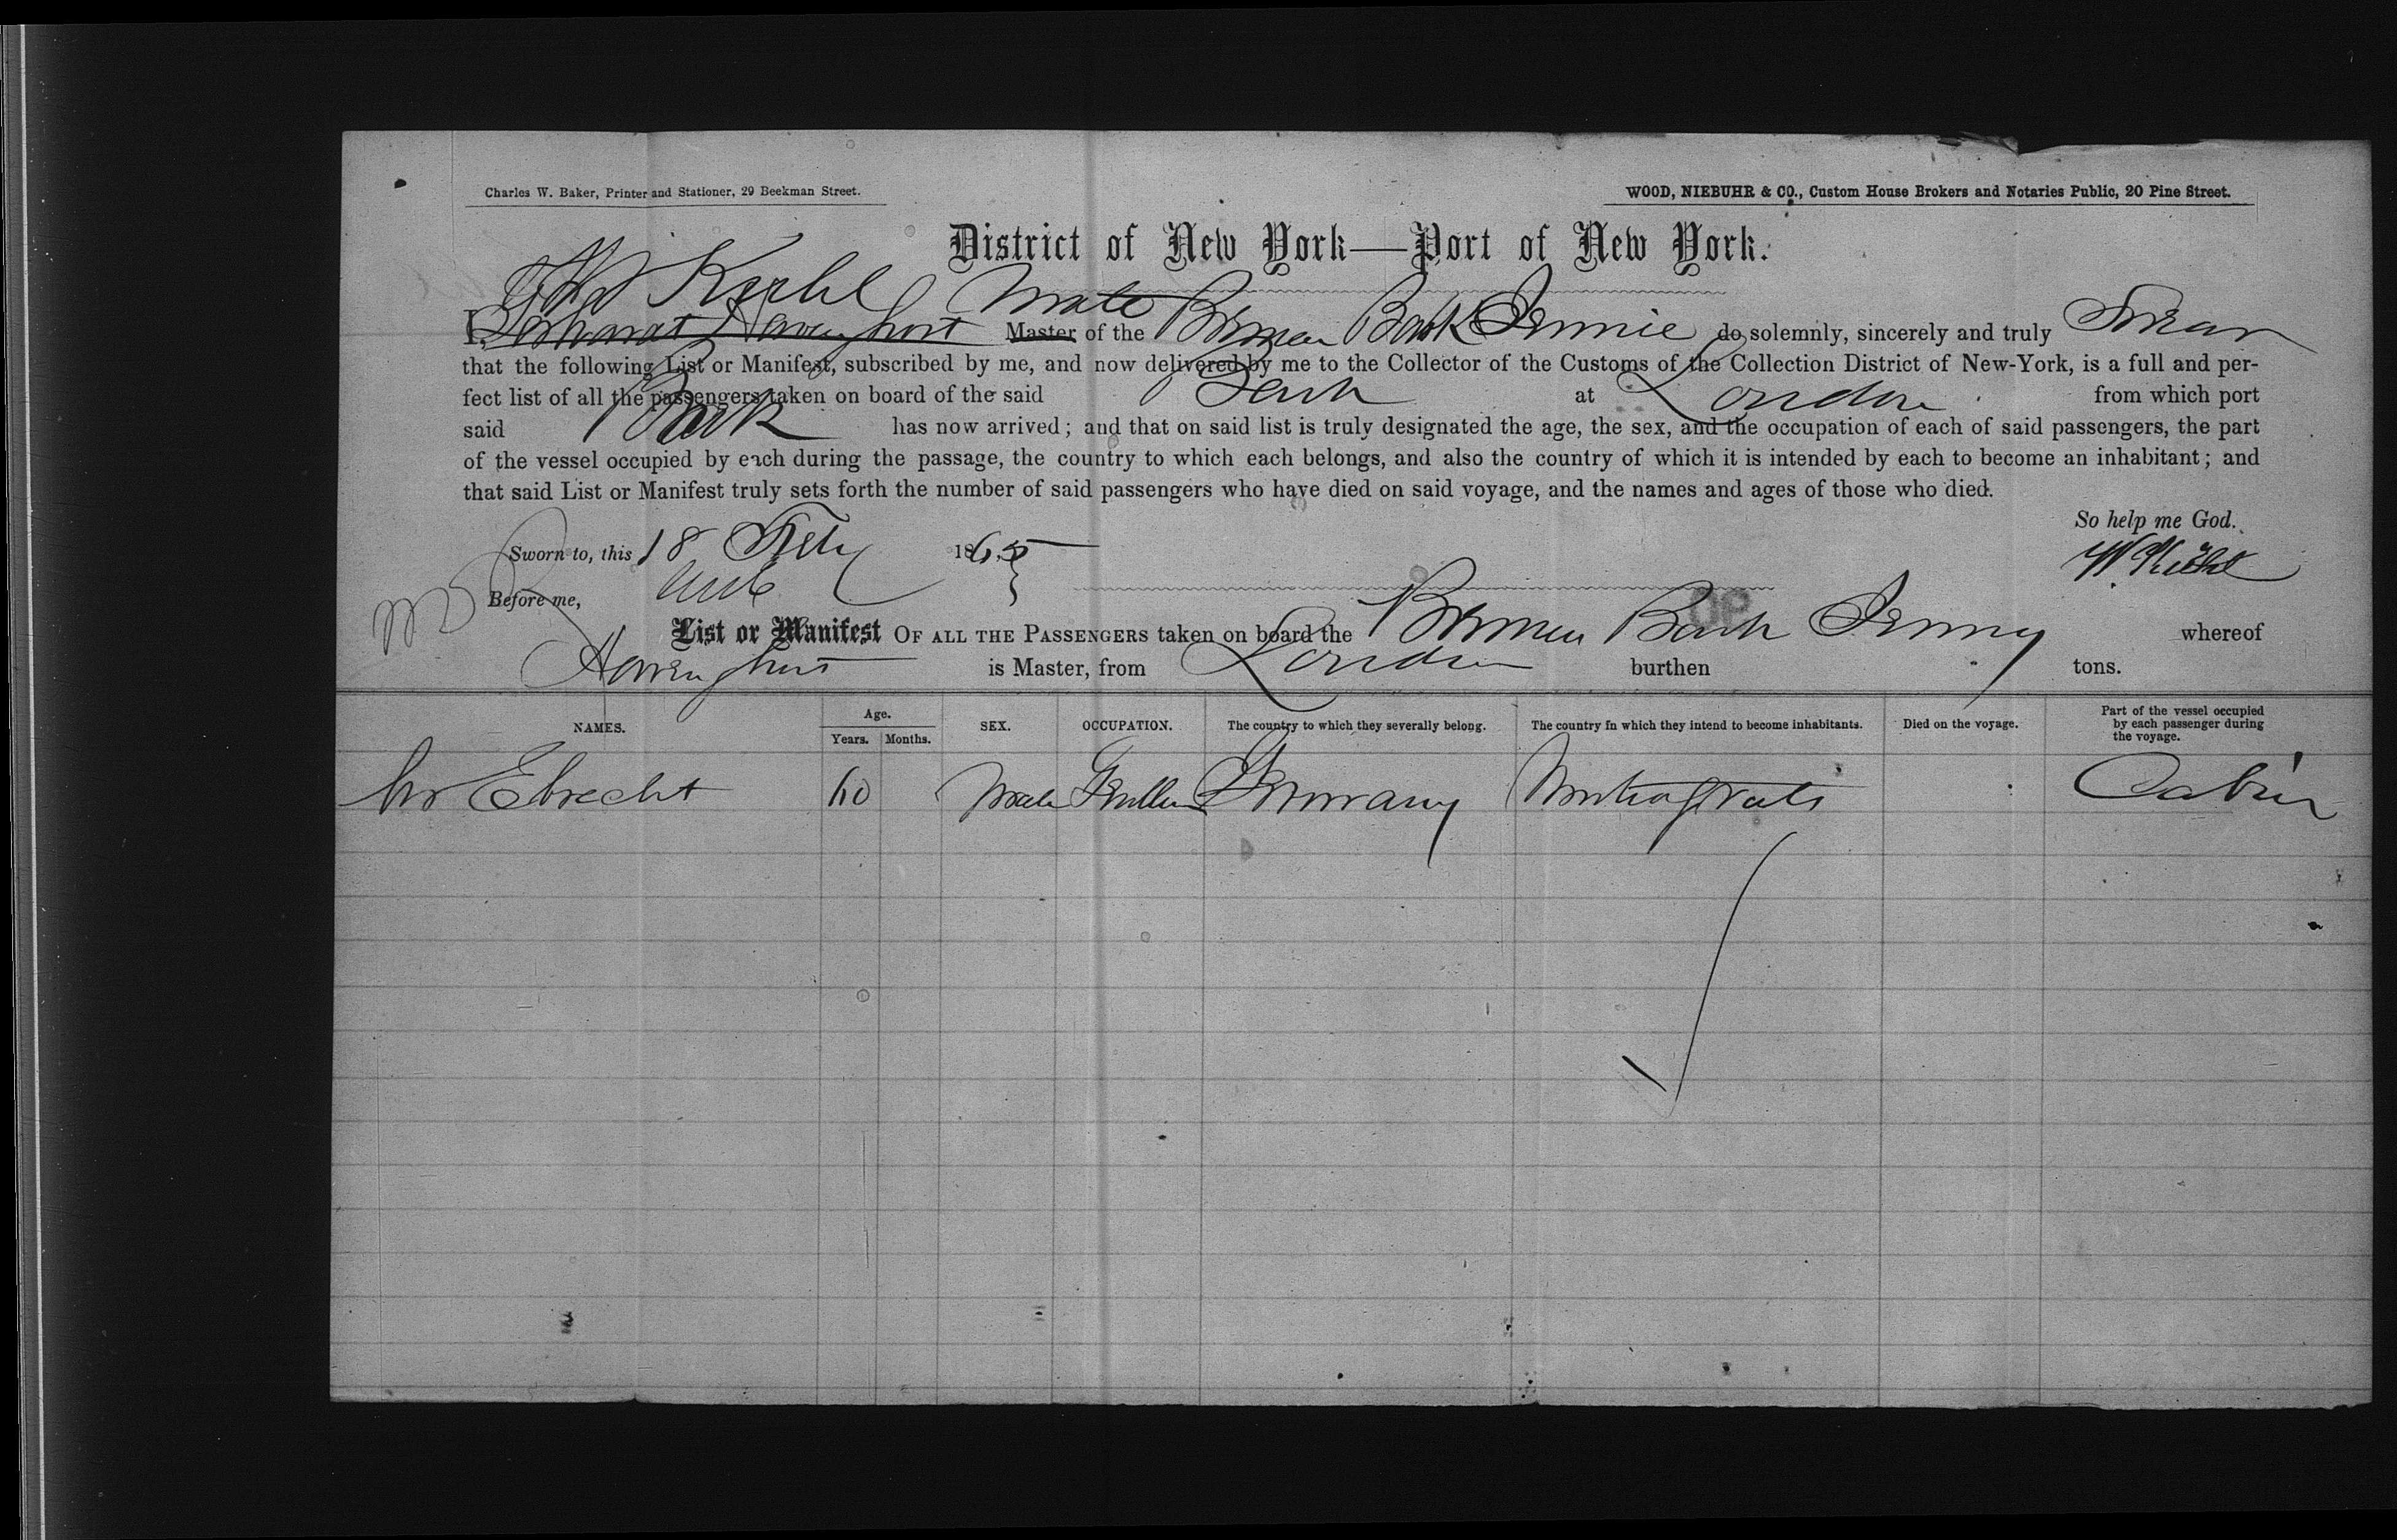 Charles W. Baker, Printer and Stationer, 29 Beekman Street.
WOOD, NIEBUHR & CO., Custom House Brokers and Notaries Public, 20 Pine Street.
District of New York—Port of New York.
Mate
I, Master of the Bremen Bark Jennie do solemnly, sincerely and truly Swear
that the following List or Manifest, subscribed by me, and now delivered by me to the Collector of the Customs of the Collection District of New-York, is a full and per-
fect list of all the passengers taken on board of the said Bark at London from which port
said Bark has now arrived; and that on said list is truly designated the age, the sex, and the occupation of each of said passengers, the part
of the vessel occupied by each during the passage, the country to which each belongs, and also the country of which it is intended by each to become an inhabitant; and
that said List or Manifest truly sets forth the number of said passengers who have died on said voyage, and the names and ages of those who died.
So help me God.
Sworn to, this 18 Feby 1865
Before me,
List or Manifest OF ALL THE PASSENGERS taken on board the Bremen Bark Jenny whereof
is Master, from London burthen tons.
NAMES. Age. Years. Months. SEX. OCCUPATION. The country to which they severally belong. The country in which they intend to become inhabitants. Died on the voyage. Part of the vessel occupied by each passenger during the voyage.
Ebrecht 60 Male Germany Cabin